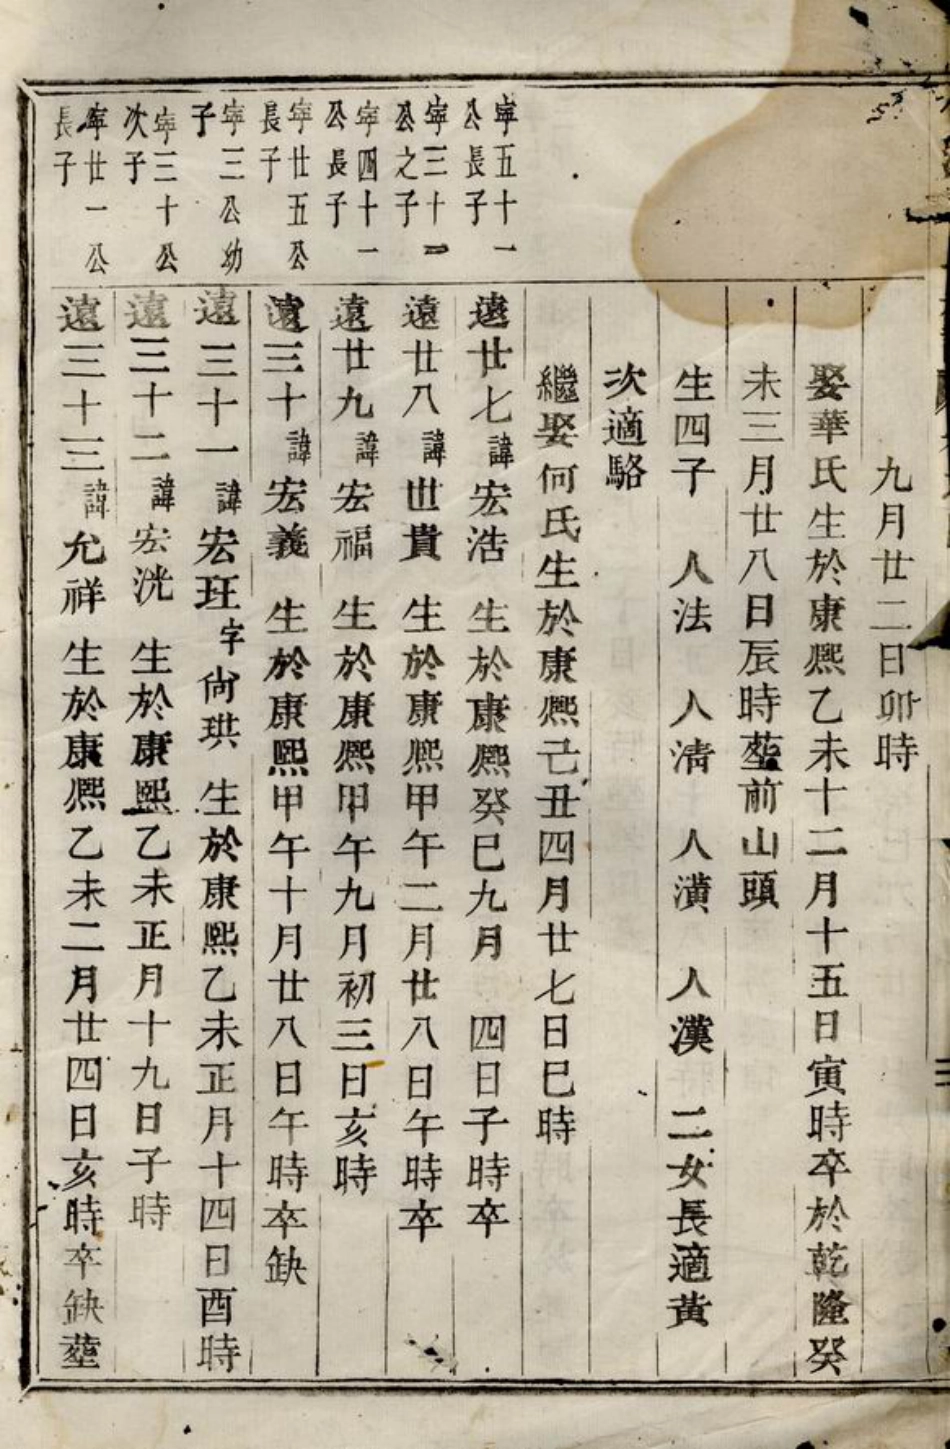 九月廿二日卯時
娶華氏生於康熙乙未十二月十五日寅時卒於乾隆癸
未三月廿八日辰時塟前山頭
生四子 人法 人清 人潢 人漢 二女長適黃
次適駱
繼娶何氏生於康熙己丑四月廿七日巳時
寜五十一公長子
遠廿七諱宏浩 生於康熙癸巳九月 四日子時卒
寜三十二公之子
遠廿八諱世貴 生於康熙甲午二月廿八日午時卒
寜四十一公長子
遠廿九諱宏福 生於康熙甲午九月初三日亥時
寜廿五公長子
遠三十諱宏義 生於康熙甲午十月廿八日午時卒缺
寜三公幼子
遠三十一諱宏玨字尙珙 生於康熙乙未正月十四日酉時
寜三十公次子
遠三十二諱宏洸 生於康熙乙未正月十九日子時
寜廿一公長子
遠三十三諱允祥 生於康熙乙未二月廿四日亥時卒缺塟